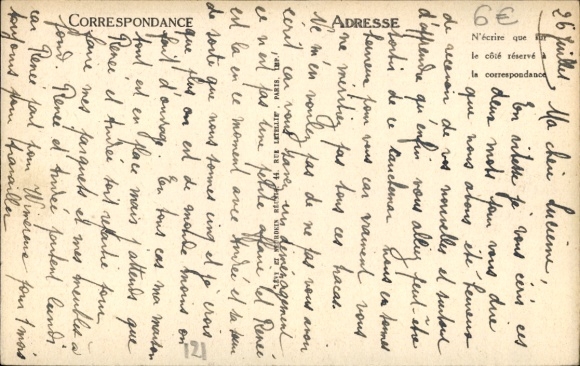 CORRESPONDANCE
ADRESSE
6€
N'écrire que sur
le côté réservé à
la correspondance
26 juillet
Ma chère Lucienne,
En vitesse je vous écris ces
deux mots pour vous dire
que nous avons été heureux
de recevoir de vos nouvelles et surtout
d'apprendre qu'enfin vous alliez peut-être
sortir de ce cauchemar. Nous en sommes
heureux pour vous car vraiment vous
ne méritiez pas tous ces tracas.
Ne m'en voulez pas de ne pas vous avoir
écrit car vous savez, un déménagement
ce n'est pas une petite affaire et Renée
est là en ce moment avec André et sa
de sorte que nous sommes cinq et je crois
que plus on est de monde moins on
fait d'ouvrage. En tous cas ma maison
tout est en place mais j'attends que
Renée et André soit repartie pour
faire mes parquets et mes meubles à
fond. Renée et André partent lundi
car Renée part pour Wimereux pour 1 mois
toujours pour travailler
121